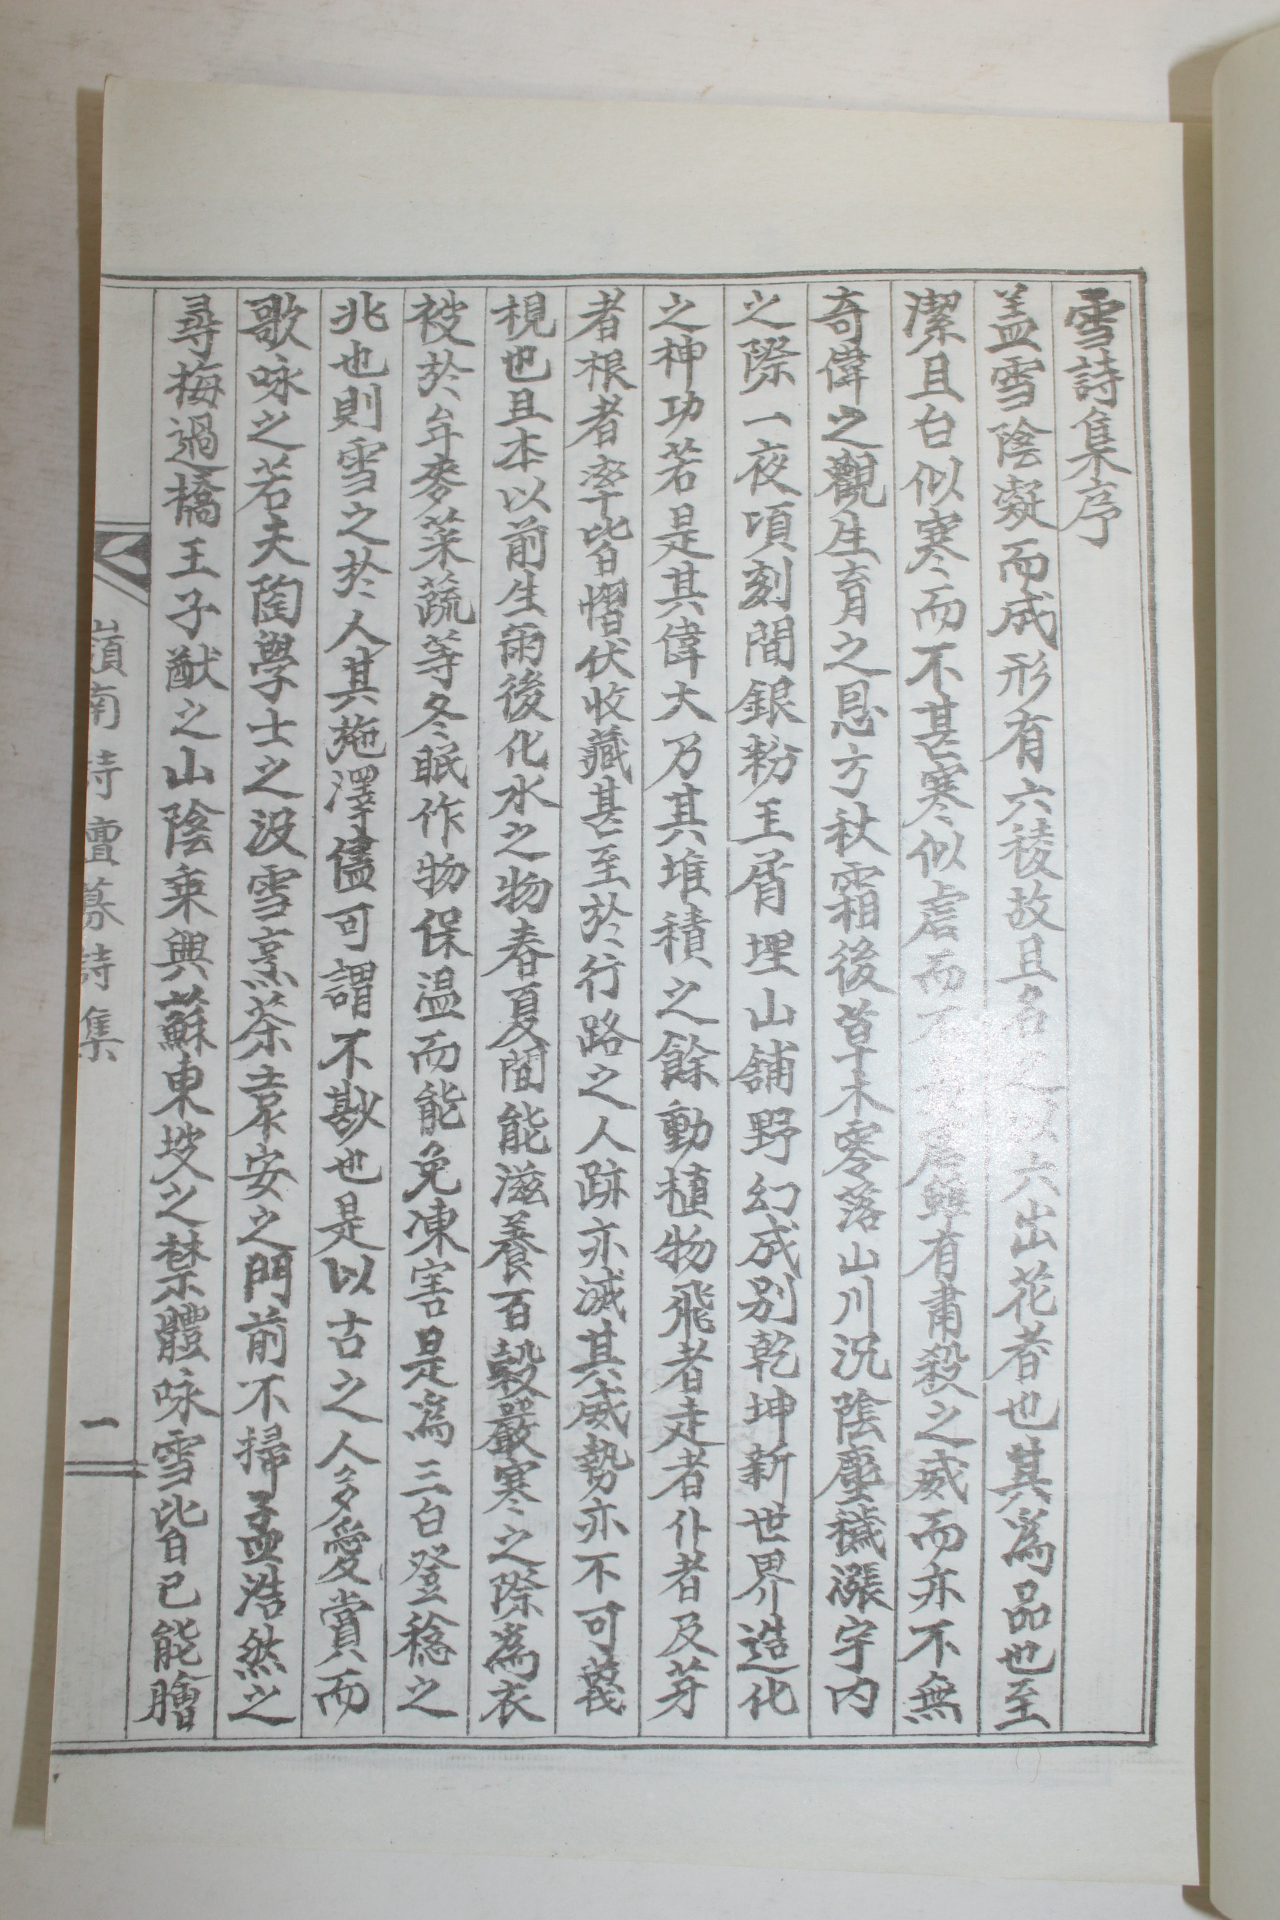 雪詩集序
盖雪陰凝而成形有六稜故且名之以六出花者也其爲品也至
潔且白似寒而不甚寒似虐而不甚虐雖有肅殺之威而亦不無
奇偉之觀生育之恩方秋霜後草木零落山川況陰塵穢漲宇内
之際一夜頃刻間銀粉玉屑埋山舖野幻成別乾坤新世界造化
之神功若是其偉大乃其堆積之餘動植物飛者走者仆者及芽
者根者率皆慴伏收藏甚至於行路之人跡亦滅其威勢亦不可蔑
視也且本以前生雨後化水之物春夏間能滋養百穀嚴寒之際爲衣
被於牟麥菜蔬等冬眠作物保温而能免凍害是爲三白登稔之
兆也則雪之於人其施澤儘可謂不尠也是以古之人多愛賞而
歌咏之若夫陶學士之汲雪烹茶袁安之門前不掃孟浩然之
尋梅過橋王子猷之山陰乘興蘇東坡之禁體咏雪皆已能膾
嶺南詩壇募詩集
一